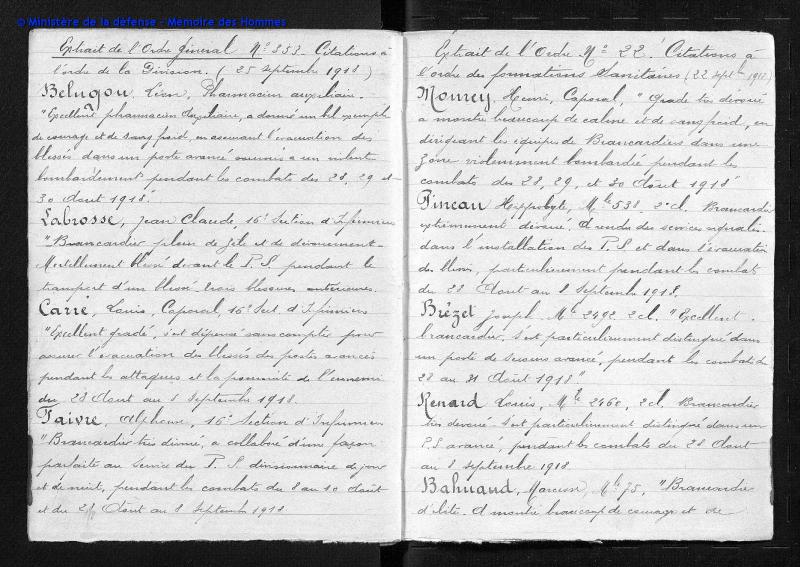 © Ministère de la défense - Mémoire des Hommes
Extrait de l'Ordre Général N° 353. Citations à
l'ordre de la Division. (25 septembre 1918)
Belugou, Léon, Pharmacien auxiliaire.
"Excellent pharmacien auxiliaire, a donné un bel exemple
de courage et de sang froid, en assurant l'évacuation des
blessés dans un poste avancé soumis à un violent
bombardement pendant les combats des 28, 29 et
30 Août 1918.
Labrosse, Jean Claude, 16e Section d'Infirmiers
"Brancardier plein de zèle et de dévouement.
Mortellement blessé devant le P.S. pendant le
transport d'un blessé. trois blessures antérieures.
Carré, Louis, Caporal, 16e Sect. d'Infirmiers
"Excellent gradé, s'est dépensé sans compter pour
assurer l'évacuation des blessés des postes avancés
pendant les attaques et la poursuite de l'ennemi
du 28 Août au 8 Septembre 1918.
Faivre, Alphonse, 16e Section d'Infirmiers
"Brancardier très dévoué, a collaboré d'une façon
parfaite au service du P.S. divisionnaire de jour
et de nuit, pendant les combats du 8 au 10 Août
et du 28 Août au 8 Septembre 1918
Extrait de l'Ordre N° 22. Citations à
l'ordre des formations Sanitaires (22 septbre 1918)
Mourey, Henri, Caporal, "Gradé très dévoué
a montré beaucoup de calme et de sang froid, en
dirigeant les équipes de Brancardiers dans une
zône violemment bombardée pendant les
combats des 28, 29, et 30 Août 1918"
Pineau Hyppolyte, Mle 538. 2e cl. Brancardier
extrêmement dévoué. A rendu des services signalés
dans l'installation des P.S et dans l'évacuation
des blessés, particulièrement pendant les combats
du 28 Août au 8 Septembre 1918.
Brézet Joseph Mle 2492. 2 cl. "Excellent
brancardier, s'est particulièrement distingué dans
un poste de secours avancé, pendant les combats du
28 au 31 Août 1918"
Renard Louis, Mle 2460, 2 cl. Brancardier
très dévoué. s'est particulièrement distingué dans un
P.S avancé, pendant les combats du 28 Août
au 8 septembre 1918.
Bahuaud, Mle 75, "Brancardier
d'élite. A montré beaucoup de courage et de